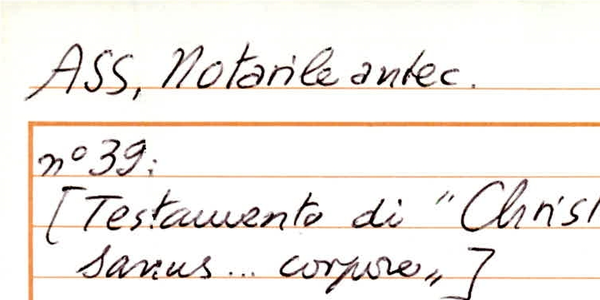 ASS, Notarile antec.
n° 39:
[Testamento di "Christ
sanus... corpore„]